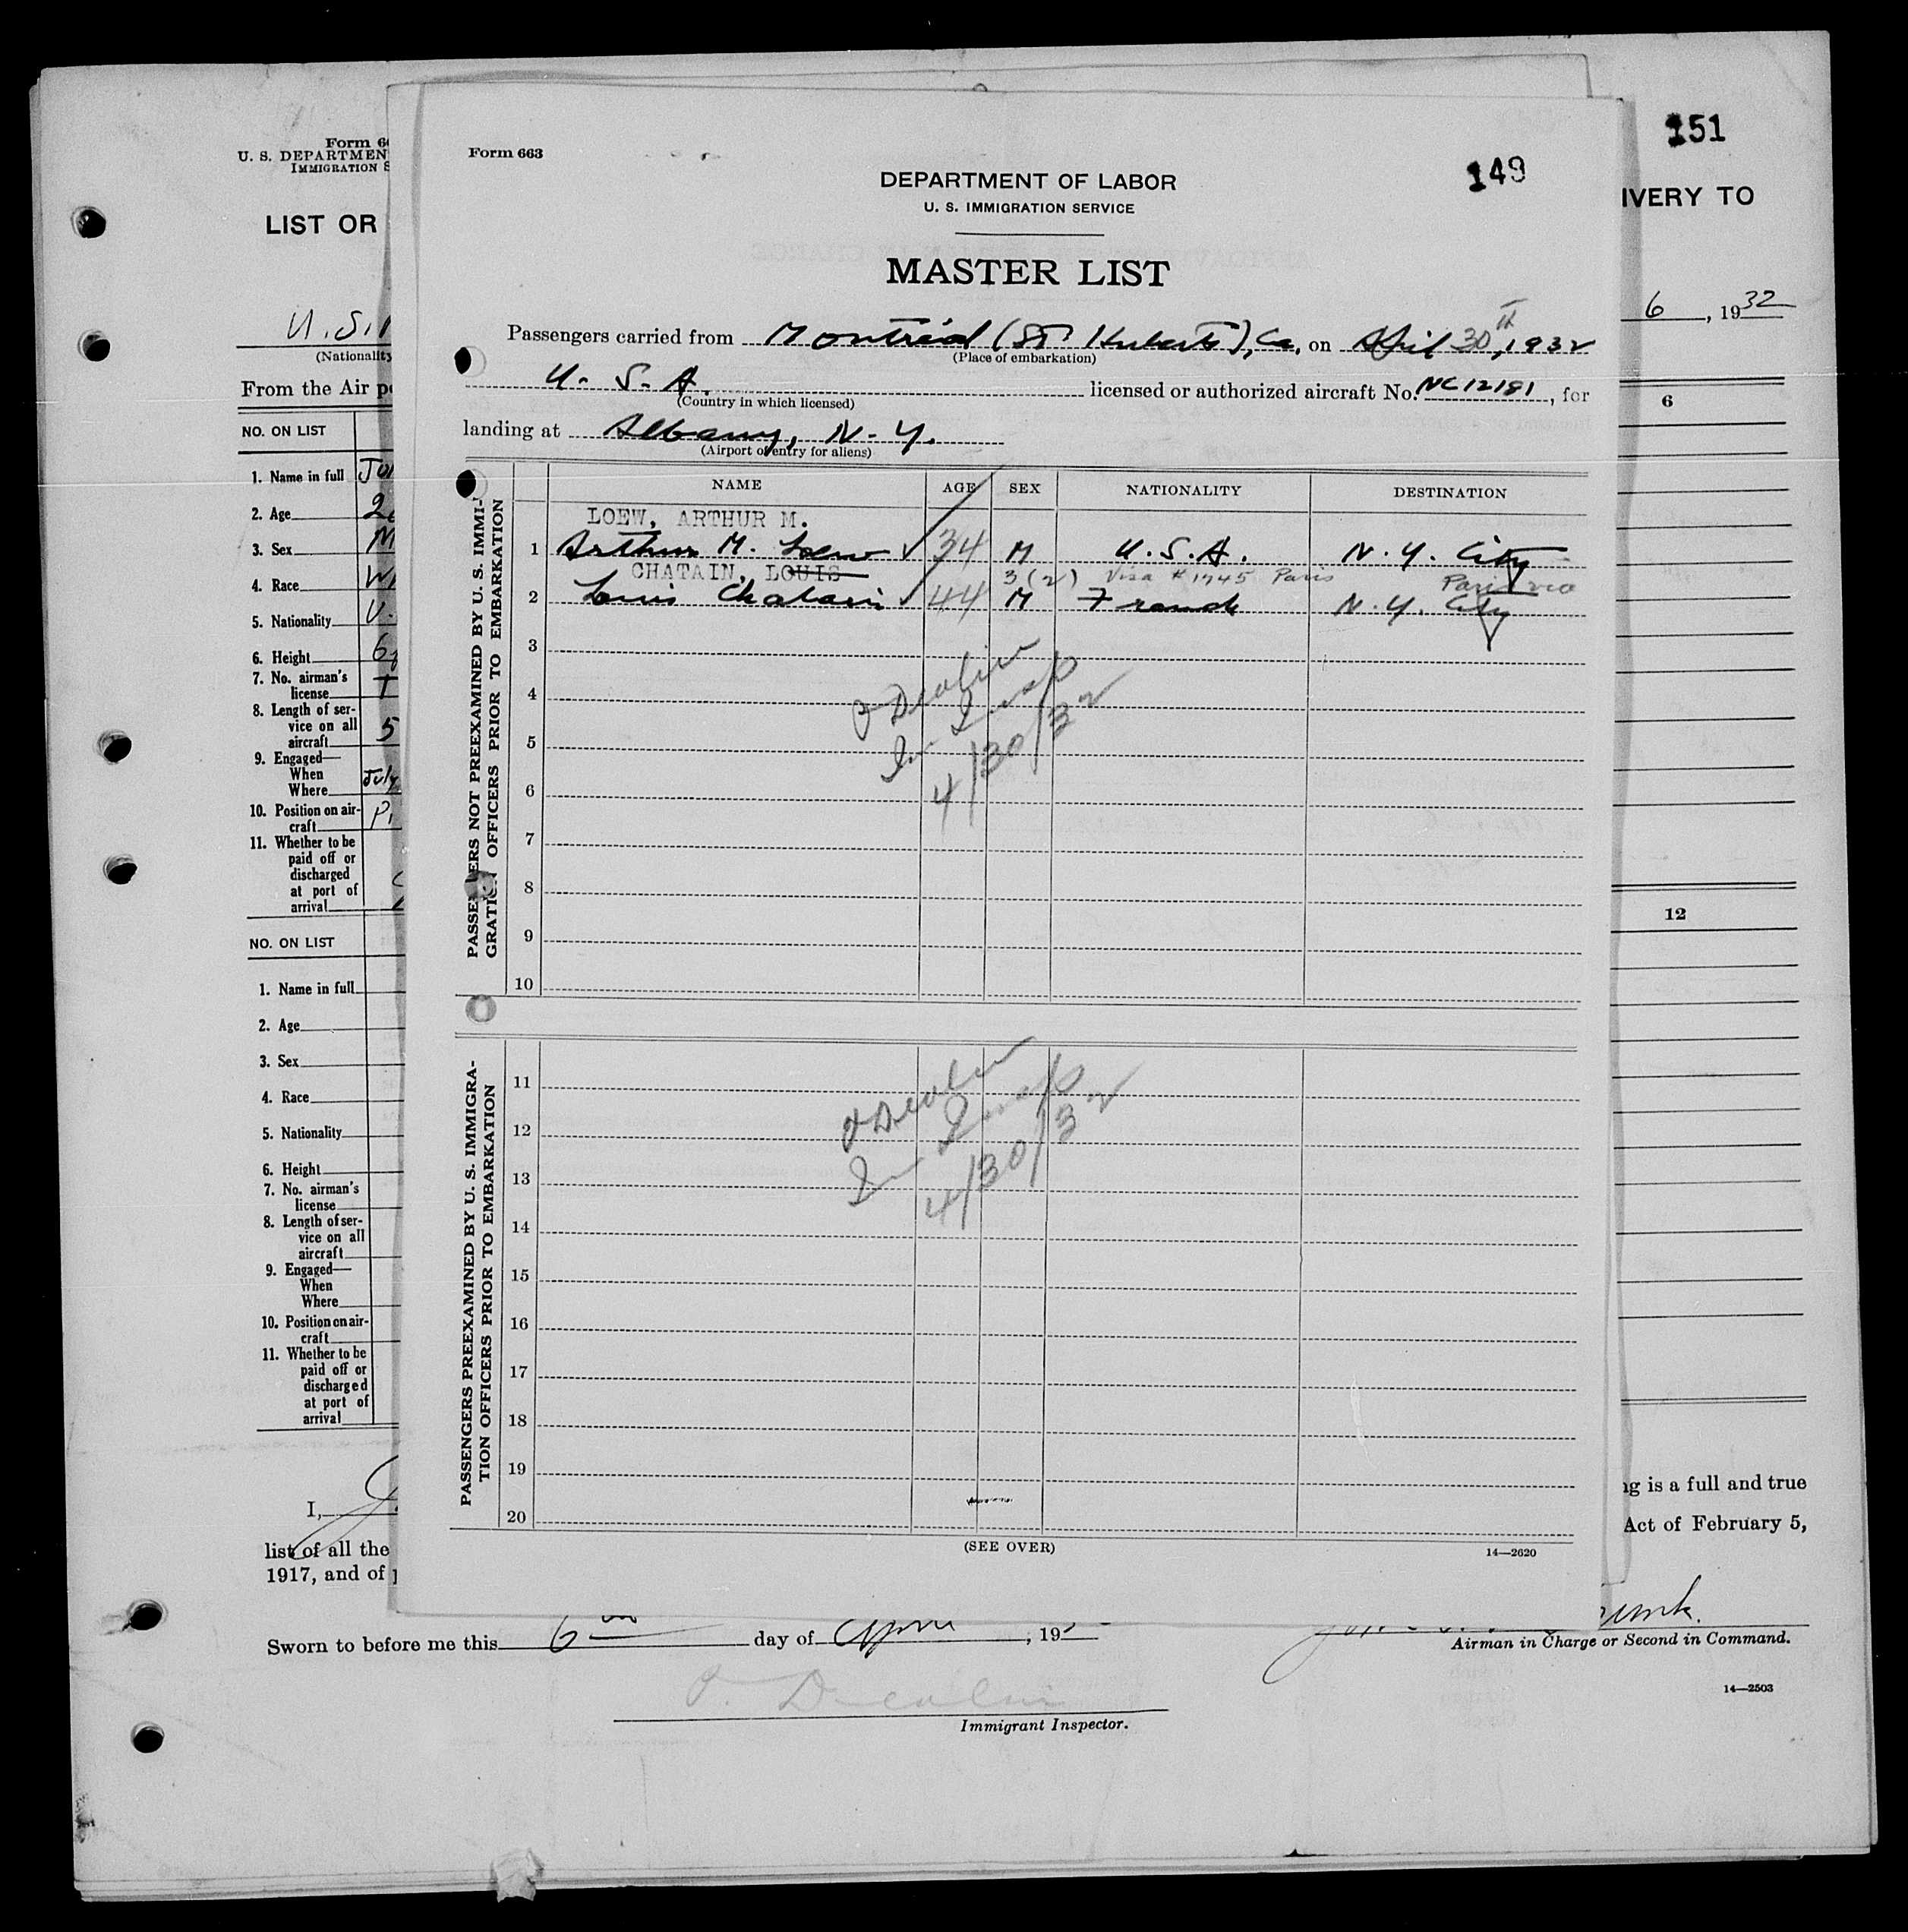 Form 66
U. S. DEPARTMEN
IMMIGRATION S
LIST OR
U.S.
(Nationality
From the Air po
NO. ON LIST
1. Name in full
2. Age
3. Sex M
4. Race
5. Nationality U.
6. Height 6
7. No. airman's
license
8. Length of ser-
vice on all
aircraft 5
9. Engaged—
When July
Where
10. Position on air-
craft
11. Whether to be
paid off or
discharged
at port of
arrival
NO. ON LIST
1. Name in full
2. Age
3. Sex
4. Race
5. Nationality
6. Height
7. No. airman's
license
8. Length of ser-
vice on all
aircraft
9. Engaged—
When
Where
10. Position on air-
craft
11. Whether to be
paid off or
discharged
at port of
arrival
I,
list of all the
1917, and of
Form 663
149
DEPARTMENT OF LABOR
U. S. IMMIGRATION SERVICE
MASTER LIST
Passengers carried from Montreal (St Huberts), Ca, on April 30th, 1932
(Place of embarkation)
U. S. A. licensed or authorized aircraft No. NC12181, for
(Country in which licensed)
landing at Albany, N. Y.
(Airport of entry for aliens)
NAME AGE SEX NATIONALITY DESTINATION
PASSENGERS NOT PREEXAMINED BY U. S. IMMI-
GRATION OFFICERS PRIOR TO EMBARKATION
LOEW, ARTHUR M.
1 Arthur M. Loew 34 M U.S.A. N. Y. City
CHATAIN, LOUIS 3(2) Visa #1745 Paris Paris via
2 Louis Chatain 44 M French N. Y. City
3
4
5
6
7
8
9
10
Insp
4/30/32
PASSENGERS PREEXAMINED BY U. S. IMMIGRA-
TION OFFICERS PRIOR TO EMBARKATION
11
12
13
14
15
16
17
18
19
20
Insp
4/30/32
(SEE OVER)
14—2620
151
IVERY TO
6, 1932
6
12
ng is a full and true
Act of February 5,
Airman in Charge or Second in Command.
14—2503
Sworn to before me this 6 day of April, 193
Immigrant Inspector.